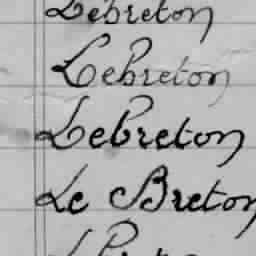 Lebreton
Lebreton
Lebreton
Le Breton